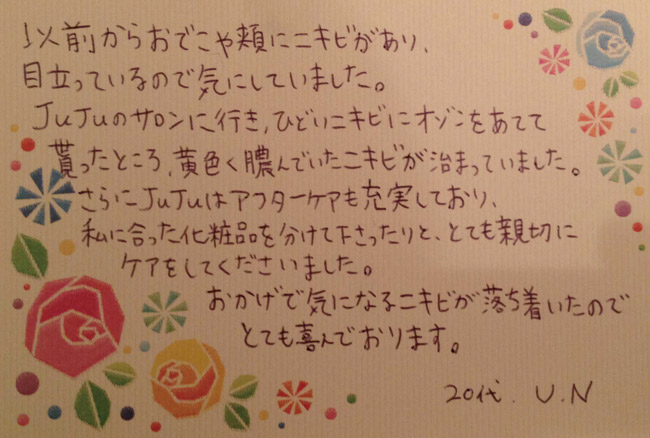 以前からおでこや頬にニキビがあり、
目立っているので気にしていました。
JuJuのサロンに行き、ひどいニキビにオゾンをあてて
貰ったところ、黄色く膿んでいたニキビが治まっていました。
さらにJuJuはアフターケアも充実しており、
私に合った化粧品を分けて下さったりと、とても親切に
ケアをしてくださいました。
おかげで気になるニキビが落ち着いたので
とても喜んでおります。
20代. U.N